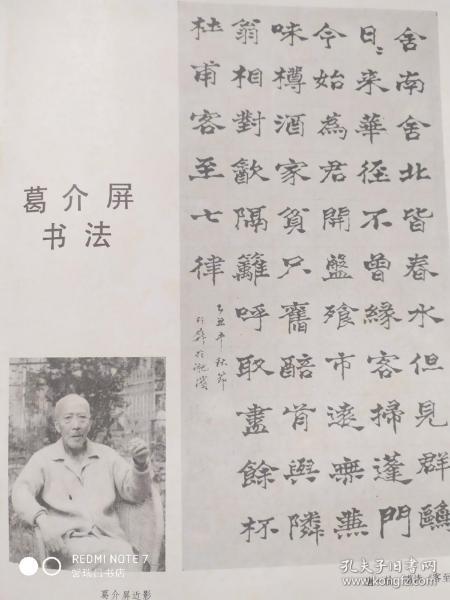 舍南舍北皆春水但見群鷗
日〻來華徑不曾緣客掃蓬門
今始為君開盤飧市遠無兼
味樽酒家貧只舊醅肯與隣
翁相對㱃隔籬呼取盡餘杯
杜甫客至七律
乙丑年秋節
介屏於淝濱
葛介屏
书法
葛介屏近影
REDMI NOTE 7
孔夫子旧书网